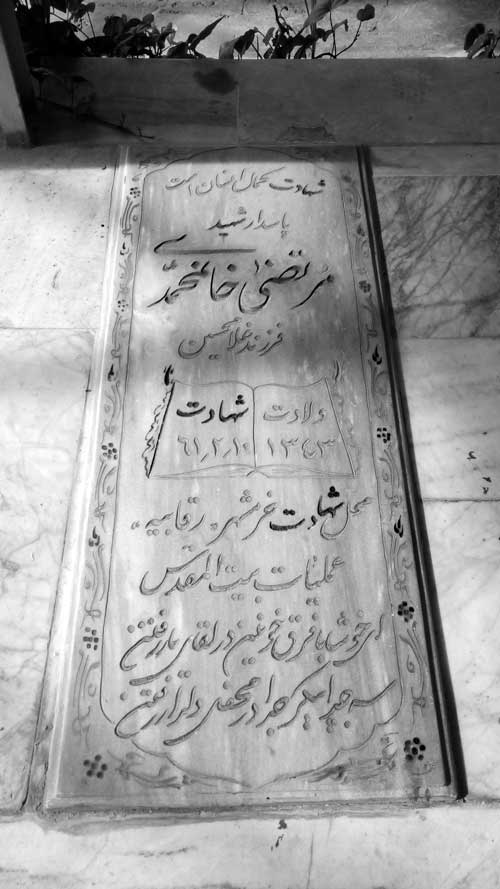 شهادت کمال انسان است
پاسدار شهید
مرتضی خانمحمدی
فرزند غلامحسین
ولادت شهادت
۱۳۴۳ ۶۱٫۲٫۱۰
محل شهادت خرمشهر، رقابیه،
عملیات بیت المقدس
ای خوشا با فرق خونین در لقای یار رفتن
سر جدا پیکر جدا در محفل دلدار رفتن